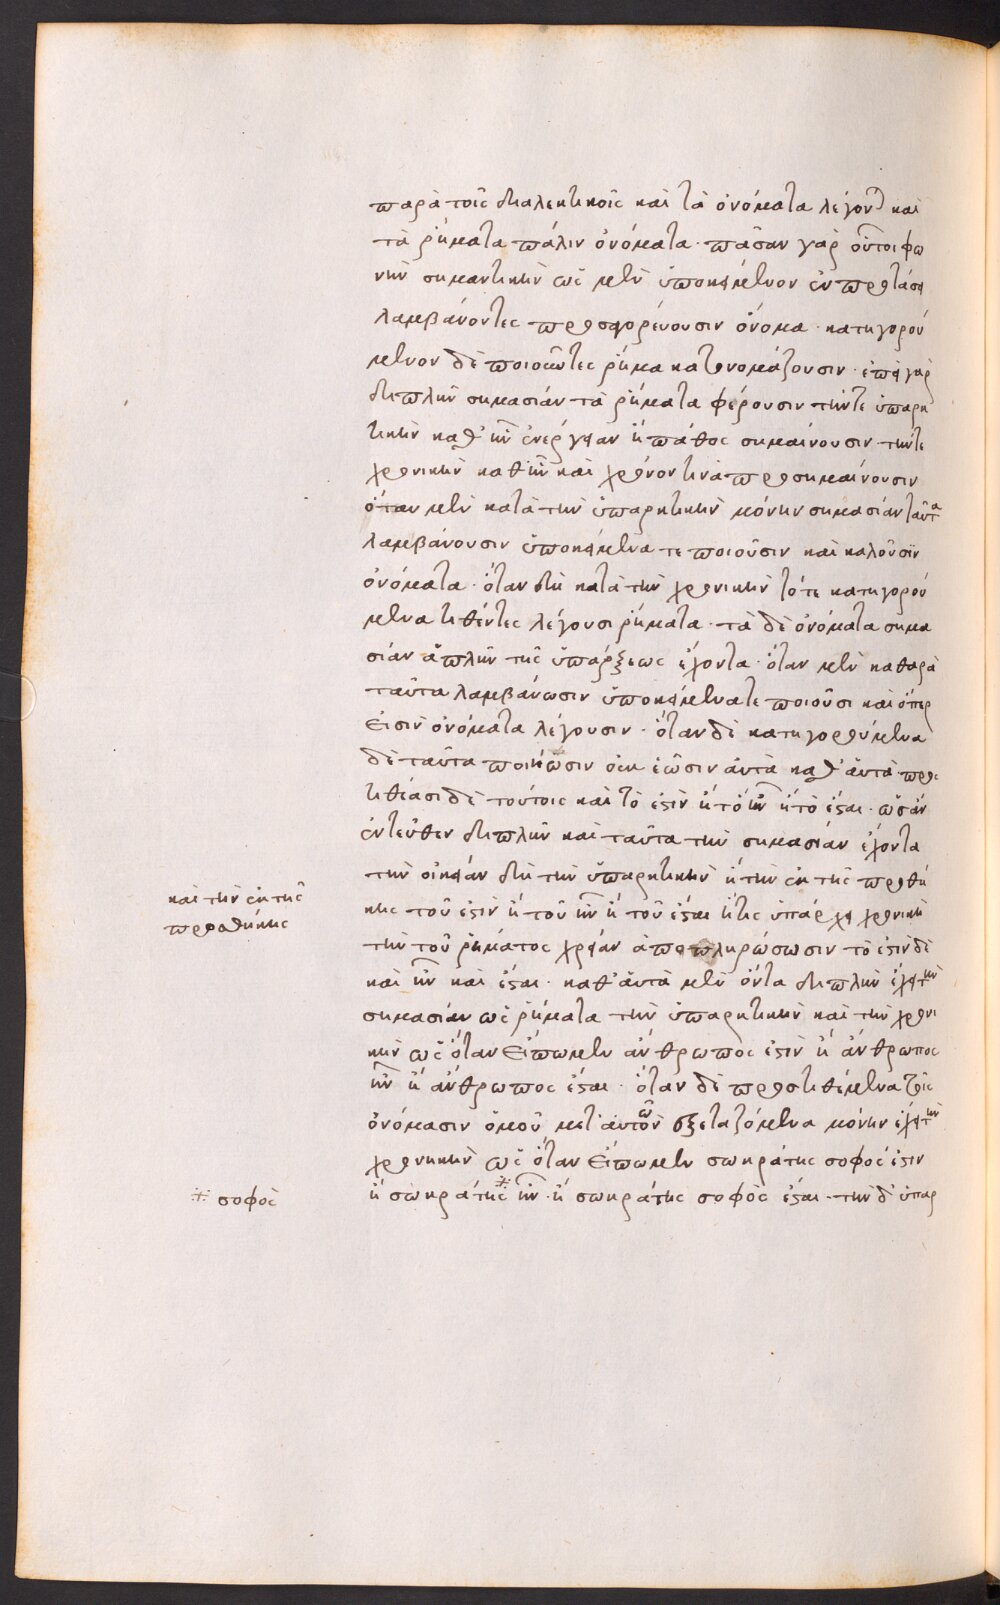 παρὰ τοῖς διαλεκτικοῖς καὶ τὰ ὀνόματα λέγον καὶ
τὰ ῥήματα πάλιν ὀνόματα · πᾶσαν γὰρ οὗτοι φω
νὴν σημαντικὴν ὡς μὲν ὑποκείμενον ἐν προτάσει
λαμβάνοντες προσαγορεύουσιν ὄνομα · κατηγορού
μενον δὲ ποιοῦντες ῥῆμα κατονομάζουσιν · ἐπεὶ γὰρ
διπλῆν σημασίαν τὰ ῥήματα φέρουσιν τήντε ὑπαρκ
τικὴν καθ' ἣν ἐνέργειαν ἢ πάθος σημαίνουσιν τήντε
χρονικὴν καθ' ἣν καὶ χρόνον τινὰ προσημαίνουσιν
ὅταν μὲν κατὰ τὴν ὑπαρκτικὴν μόνην σημασίαν ταῦτα
λαμβάνουσιν ὑποκείμενα τε ποιοῦσιν καὶ καλοῦσιν
ὀνόματα · ὅταν δὴ κατὰ τὴν χρονικὴν τότε κατηγορού
μενα τιθέντες λέγουσι ῥήματα · τὰ δὲ ὀνόματα σημα
σίαν ἁπλῆν τῆς ὑπάρξεως ἔχοντα · ὅταν μὲν καθαρὰ
ταῦτα λαμβάνωσιν ὑποκείμενατε ποιοῦσι καὶ ὅπερ
εἰσὶν ὀνόματα λέγουσιν · ὅταν δὲ κατηγορούμενα
δὲ ταῦτα ποιήσωσιν οὐκ ἐῶσιν αὐτὰ καθ' αὑτὰ προς
τιθέασι δὲ τούτοις καὶ τὸ ἐστὶν ἢ τὸ ἦν ἢ τὸ ἔσται · ὡσὰν
ἐντεῦθεν διπλῆν καὶ ταῦτα τὴν σημασίαν ἔχοντα
τὴν οἰκείαν δὴ τὴν ὑπαρκτικὴν ἢ τὴν ἐκ τῆς προσθή
κης τοῦ ἐστὶν ἢ τοῦ ἦν ἢ τοῦ ἔσται ἥτις ὑπάρχει χρονικὴ
τὴν τοῦ ῥήματος χρείαν ἀποπληρώσωσιν τὸ ἐστὶν δὲ
καὶ ἦν καὶ ἔσται · καθ' αὑτὰ μὲν ὄντα διπλῆν ἔχει τὴν
σημασίαν ὡς ῥήματα τὴν ὑπαρκτικὴν καὶ τὴν χρονι
κὴν ὡς ὅταν εἴπωμεν ἄνθρωπος ἐστὶν ἢ ἄνθρωπος
ἦν ἢ ἄνθρωπος ἔσται · ὅταν δὲ προστιθέμενα τοῖς
ὀνόμασιν ὁμοῦ μετ' αὐτῶν ἐξεταζόμενα μόνην ἔχει τὴν
χρονικὴν ὡς ὅταν εἴπωμεν σωκράτης σοφός ἐστιν
ἢ σωκράτης ※ ἦν · ἢ σωκράτης σοφὸς ἔσται · τὴν δ' ὑπαρ
καὶ τὴν ἐκ τῆς
προσθήκης
※ σοφὸς